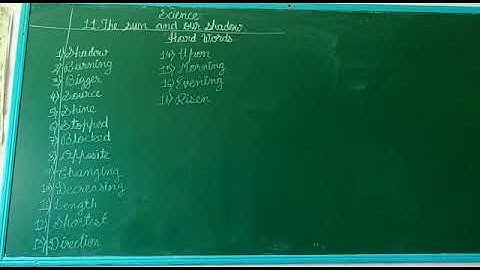 Science
11. The sun and our shadow
Hard Words
1) Shadow
2) Burning
3) Bigger
4) Source
5) Shine
6) Stopped
7) Blocked
8) Opposite
9) Changing
10) Decreasing
11) Length
12) Shortest
13) Direction
14) Upon
15) Morning
16) Evening
17) Risen